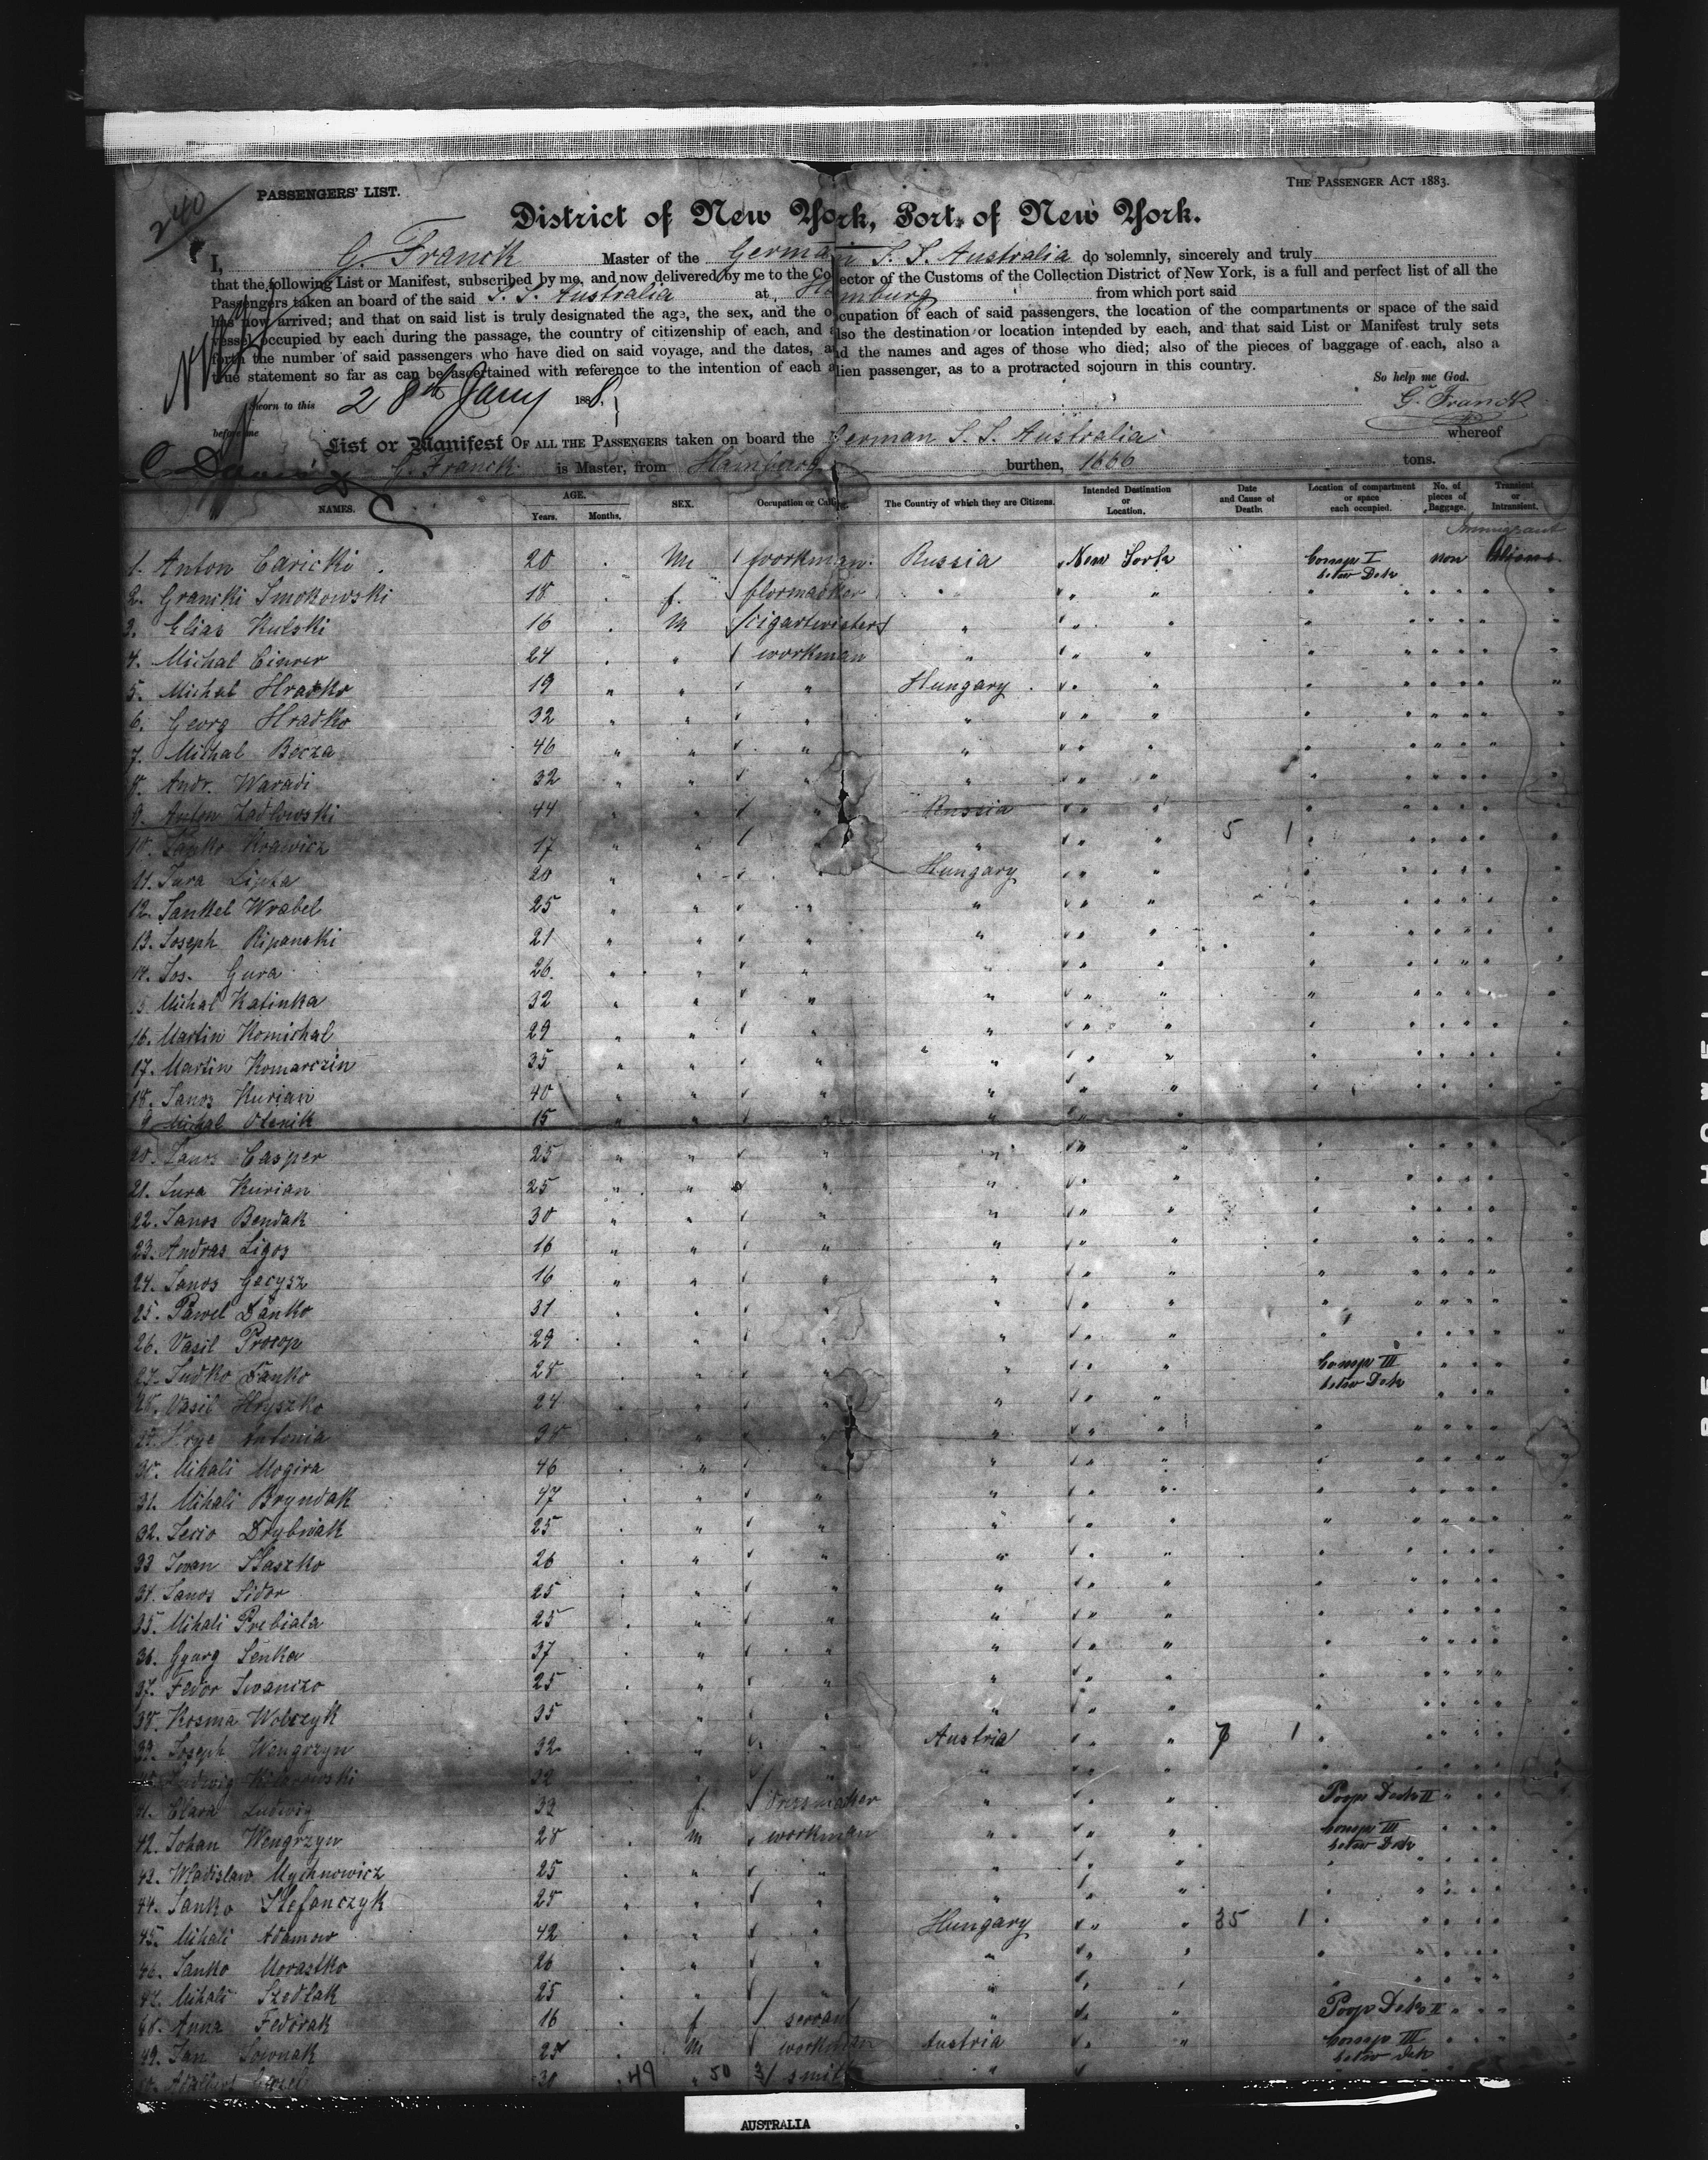 240
PASSENGERS' LIST.
THE PASSENGER ACT 1883.
District of New York, Port of New York.
I, G. Franck Master of the German S. S. Australia do solemnly, sincerely and truly
that the following List or Manifest, subscribed by me, and now delivered by me to the Collector of the Customs of the Collection District of New York, is a full and perfect list of all the
Passengers taken an board of the said S. S. Australia at Hamburg from which port said
has now arrived; and that on said list is truly designated the age, the sex, and the occupation of each of said passengers, the location of the compartments or space of the said
vessel occupied by each during the passage, the country of citizenship of each, and also the destination or location intended by each, and that said List or Manifest truly sets
forth the number of said passengers who have died on said voyage, and the dates, and the names and ages of those who died; also of the pieces of baggage of each, also a
true statement so far as can be ascertained with reference to the intention of each alien passenger, as to a protracted sojourn in this country.
So help me God.
Sworn to this 28th Jany 1888,
G. Franck
before me
List or Manifest OF ALL THE PASSENGERS taken on board the German S. S. Australia whereof
G. Franck is Master, from Hamburg burthen, 1666 tons.
NAMES. AGE. Years. Months. SEX. Occupation or Calling. The Country of which they are Citizens. Intended Destination or Location. Date and Cause of Death. Location of compartment or space each occupied. No. of pieces of Baggage. Transient or Intransient.
Immigrant
1. Anton Caricki 20 M workman Russia New York Comp I below Deck non
2. Smokowski 18 f. " "
3. Elias Kulski 16 M cigartwister " "
4. Michal 24 " workman " "
5. Michal Hradko 19 " " " Hungary "
6. Georg Hradko 32 " " " "
7. Michal Becza 46 " " " " "
8. Andr. Waradi 32 " " " "
9. Anton Zadlowski 44 " " Russia "
10. Janko 17 " " " " 5 1
11. Jura Lipta 20 " " Hungary "
12. Jankel Wrobel 25 " " " " "
13. Joseph Ripanski 21 " " " "
14. Jos. Gura 26 " " " " "
15. Michal Katinka 32 " " " " "
16. Martin Komichal 29 " " " " "
17. Martin Komarczin 35 " " " " "
18. Janos Kurian 40 " " " "
19. Mihal Olenik 15 " " " " "
20. Janos Casper 25 " " " " "
21. Jura Kurian 25 " " " " "
22. Janos Bendak 30 " " " " "
23. Andras Ligos 16 " " " " "
24. Janos Gecysz 16 " " " " "
25. Pawel Danko 31 " " " "
26. Vasil Procop 29 " " " "
27. Danko 28 " " " " Comp III below Deck
28. Vasil Hryszko 24 " " " "
29. Antonia " " " "
30. Mihali Mogira 46 " " "
31. Mihali Bryndak 47 " " " "
32. Drybniak 25 " " " "
33. Iwan Staszko 26 " " " "
34. Janos Sidor 25 " " " "
35. Mihali Prebiala 25 " " " "
36. Gyurg Senka 37 " " " "
37. Fedor Iwanizo 25 " " " "
38. Kosma Wobczyk 35 " " " "
39. Joseph Wengrzyn 32 " " Austria " 7 1
40. Ludwig 32 " " " "
41. Clara Ludwig 32 f. " " Poop Deck II
42. Johan Wengrzyn 28 m workman " " Comp III below Deck
43. Wladislaw Mychnowicz 25 " " " "
44. Janko Stefanczyk 28 " " " "
45. Mihali Adamow 42 " " Hungary " 35 1
46. Janko Morastko 26 " " " "
47. Mihali Szedlak 25 " " " "
48. Anna Fedorak 16 f servant " " Poop Deck II
49. Jan 25 M workman Austria " Comp III below Deck
50. 30 49 50 3/ smith "
AUSTRALIA